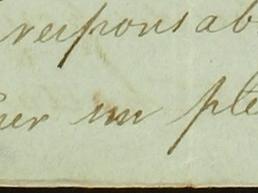 responsab
er un ple